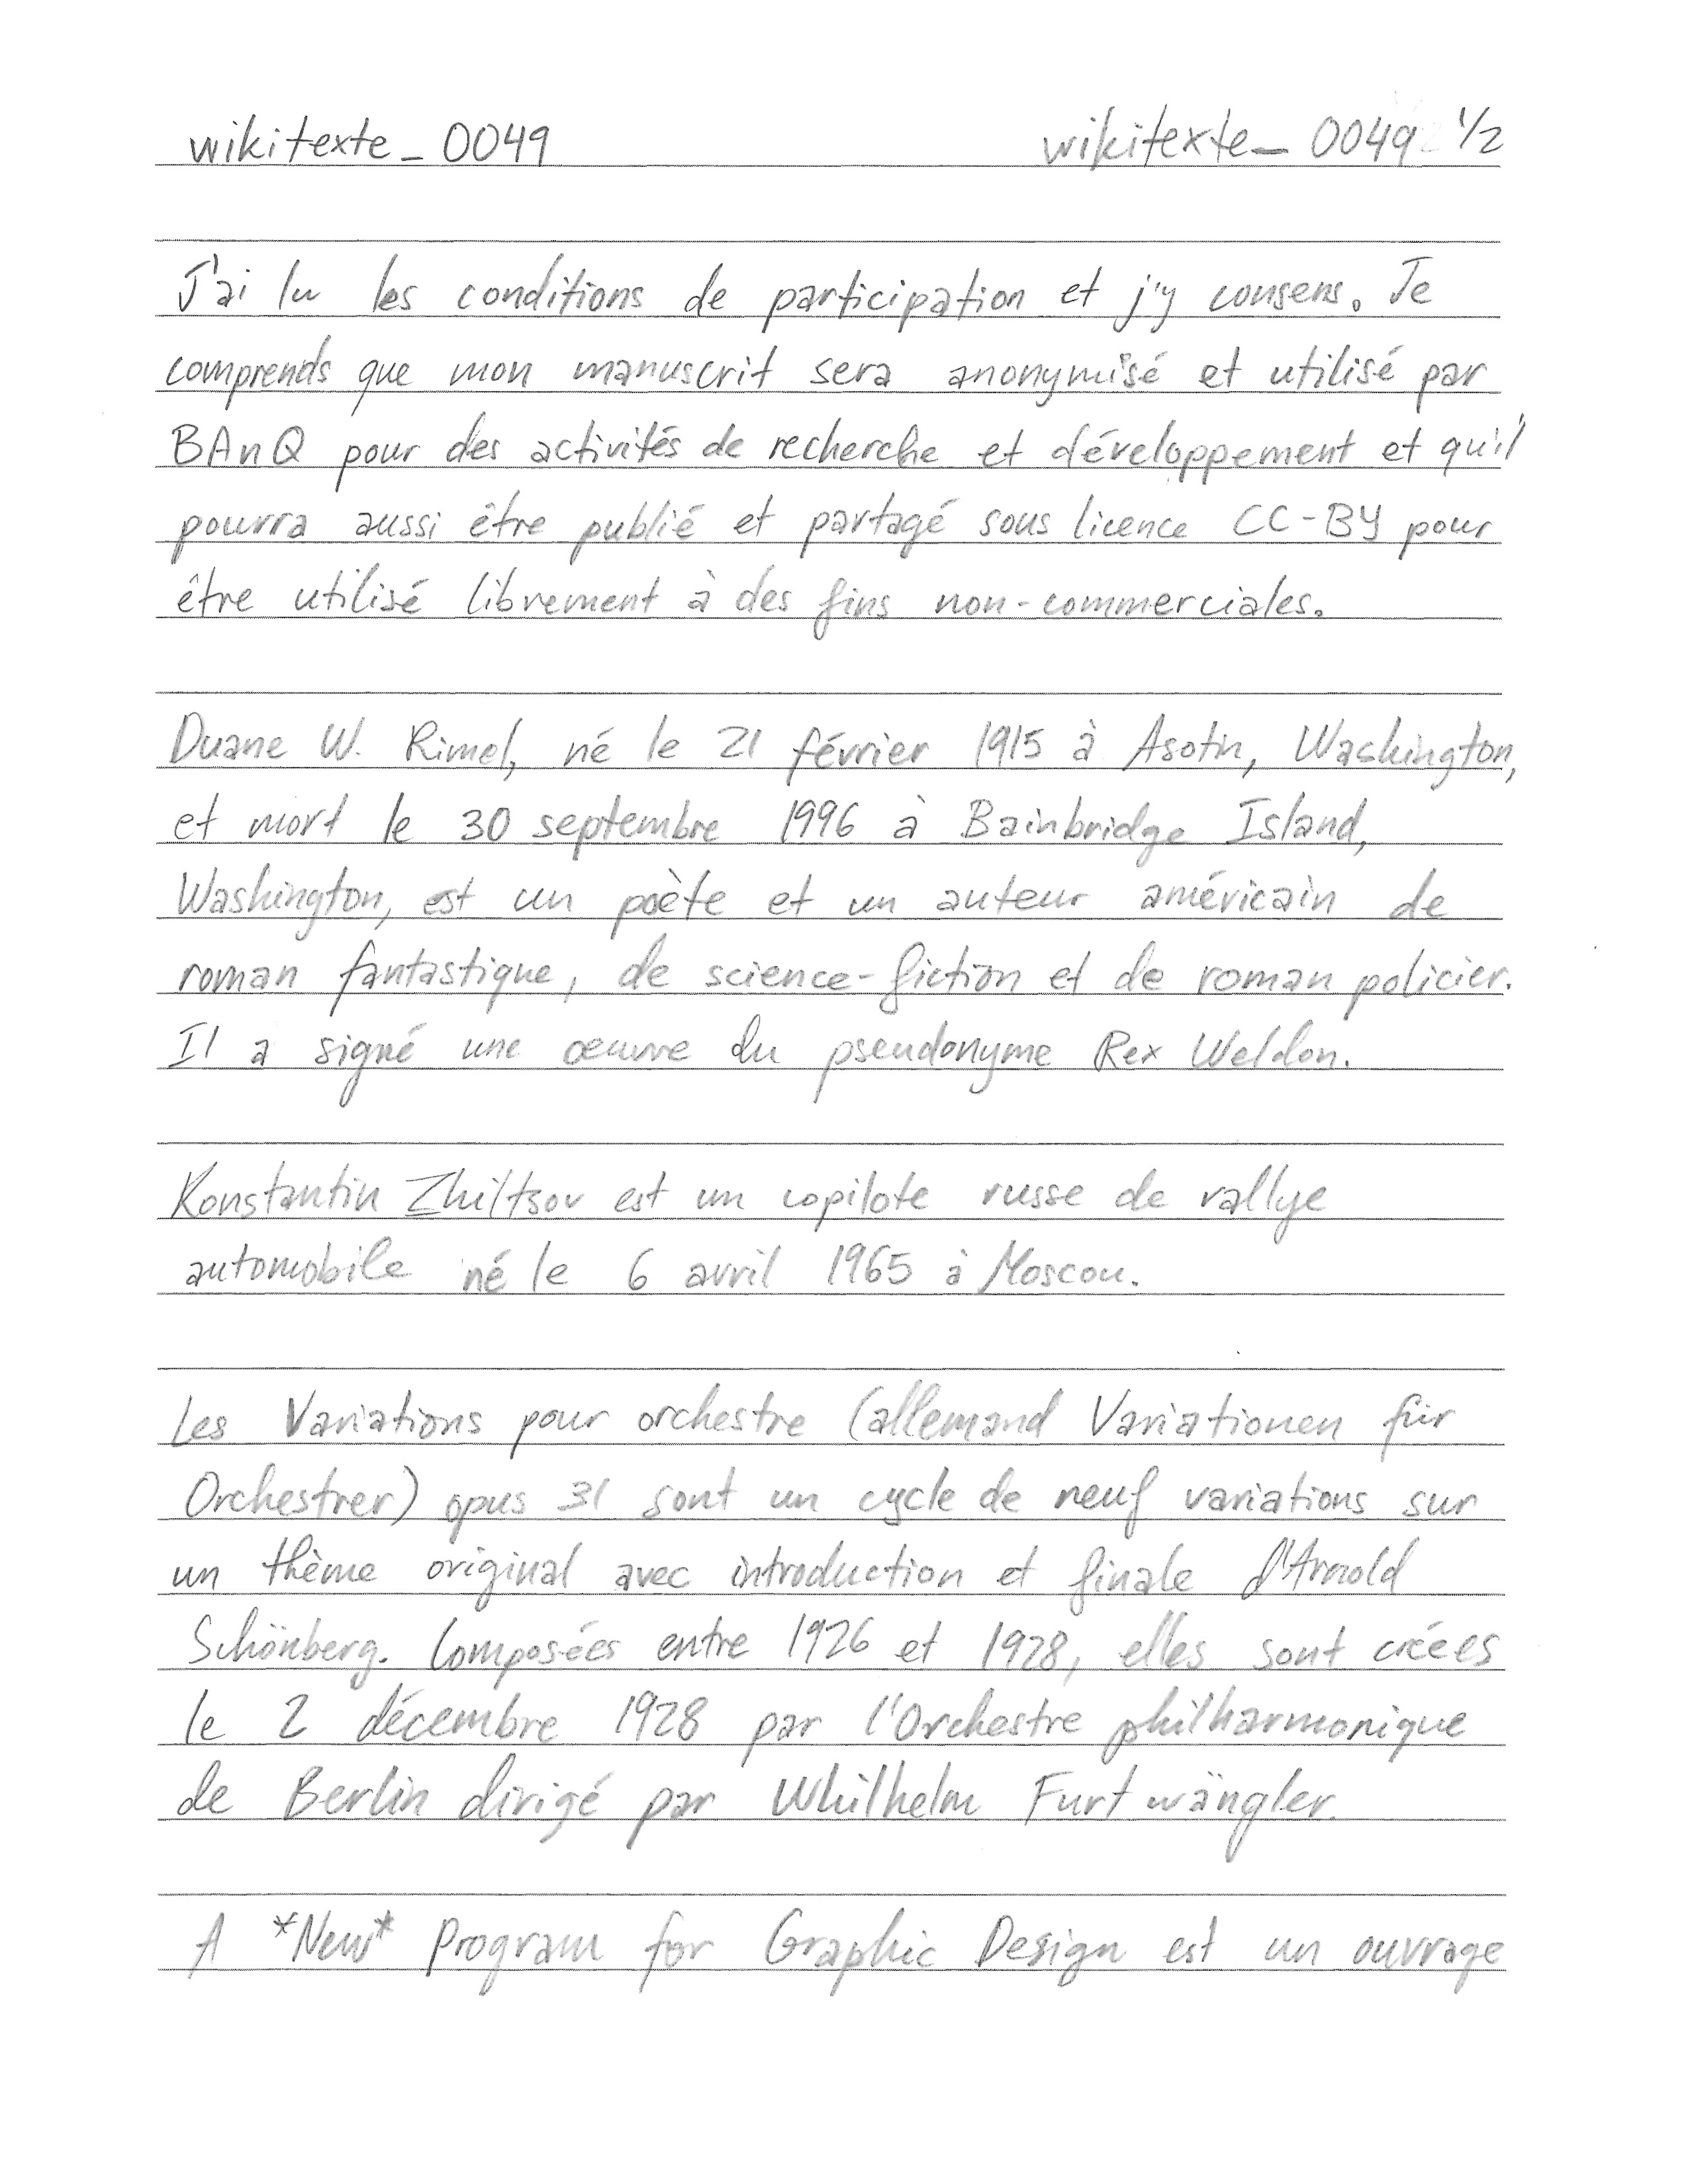 wikitexte_0049 wikitexte_0049 1/2
J'ai lu les conditions de participation et j'y consens. Je
comprends que mon manuscrit sera anonymisé et utilisé par
BAnQ pour des activités de recherche et développement et qu'il
pourra aussi être publié et partagé sous licence CC-BY pour
être utilisé librement à des fins non-commerciales.
Duane W. Rimel, né le 21 février 1915 à Asotin, Washington,
et mort le 30 septembre 1996 à Bainbridge Island,
Washington, est un poète et un auteur américain de
roman fantastique, de science-fiction et de roman policier.
Il a signé une œuvre du pseudonyme Rex Weldon.
Konstantin Zhiltsov est un copilote russe de rallye
automobile né le 6 avril 1965 à Moscou.
Les Variations pour orchestre (allemand Variationen für
Orchestrer) opus 31 sont un cycle de neuf variations sur
un thème original avec introduction et finale d'Arnold
Schönberg. Composées entre 1926 et 1928, elles sont créées
le 2 décembre 1928 par l'Orchestre philharmonique
de Berlin dirigé par Whilhelm Furtwängler.
A *New* Program for Graphic Design est un ouvrage